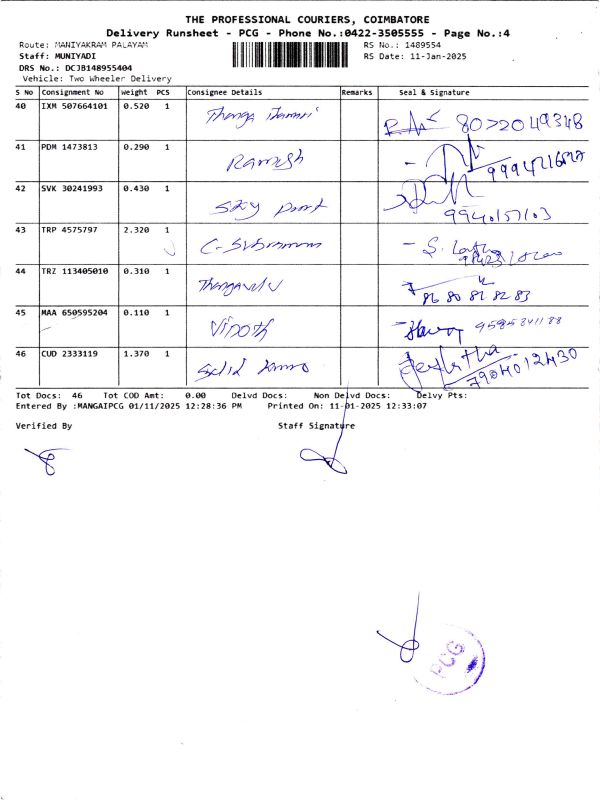 THE PROFESSIONAL COURIERS, COIMBATORE
Delivery Runsheet - PCG - Phone No.:0422-3505555 - Page No.:4
Route: MANIYAKRAM PALAYAM RS No.: 1489554
Staff: MUNIYADI RS Date: 11-Jan-2025
DRS No.: DCJB148955404
Vehicle: Two Wheeler Delivery
S No Consignment No Weight PCS Consignee Details Remarks Seal & Signature
40 IXM 507664101 0.520 1 Thanga
41 PDM 1473813 0.290 1 Ramesh
42 SVK 30241993 0.430 1 9940157103
43 TRP 4575797 2.320 1 S. Latha
44 TRZ 113405010 0.310 1 Thangavelu
86 80 81 82 83
45 MAA 650595204 0.110 1 Vinoth
46 CUD 2333119 1.370 1 Solid 7904012430
Tot Docs: 46 Tot COD Amt: 0.00 Delvd Docs: Non Delvd Docs: Delvy Pts:
Entered By :MANGAIPCG 01/11/2025 12:28:36 PM Printed On: 11-01-2025 12:33:07
Verified By Staff Signature
PCG